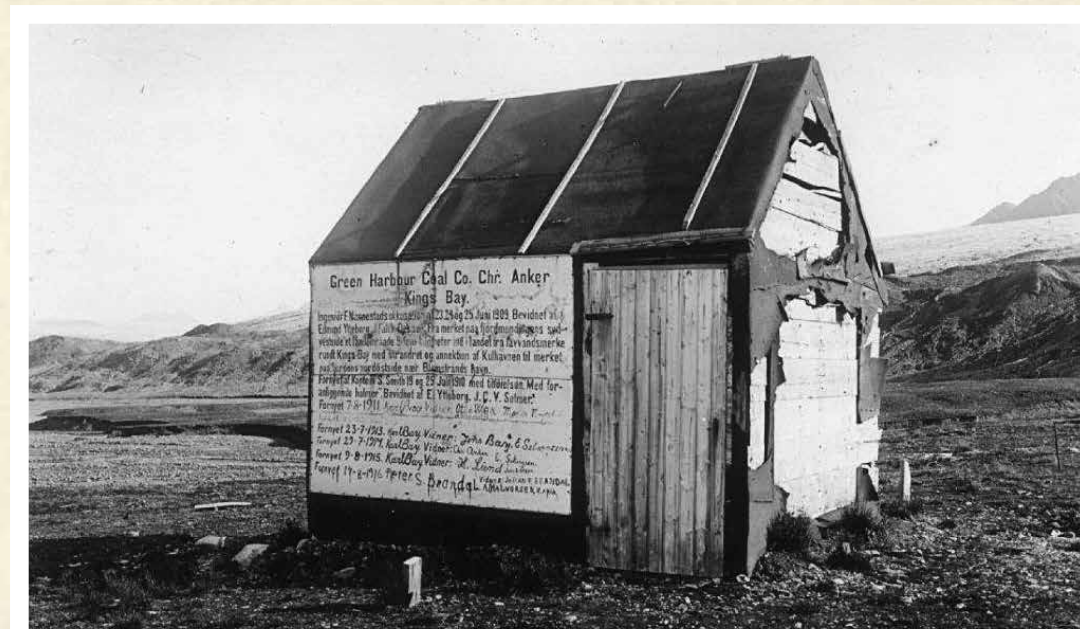 Green Harbour Coal Co. Chr. Anker
Kings Bay.
Ingeniør F. Nannestads okkupasion af 23, 24 og 25 Juni 1909. Bevidnet af
Edmund Ytteborg, J. Fra merket paa fjordmundingens syd-
vestside et landomraade 5 ind i landet fra lavvandsmerke
rundt Kings-Bay med strandret og annektion af Kulhavnen til merket
paa fjordens nordostside nær Blomstrands havn.
Fornyet af Kaptein S. Smith 19 og 25 Juli 1910 med tilföielsen. Med for-
anliggende holmer. Bevidnet af E. Ytteborg. J. C. V. Salmer.
Fornyet 7-8-1911. Karl Bay Vidner
Fornyet 23-7-1913. Karl Bay. Vidner: John Bay, E.
Fornyet 29-7-1914. Karl Bay. Vidner: E.
Fornyet 9-8-1915. Karl Bay. Vidner: H. Lund
Fornyet 14-8-1916. Peter S. Brandal. Vidner: